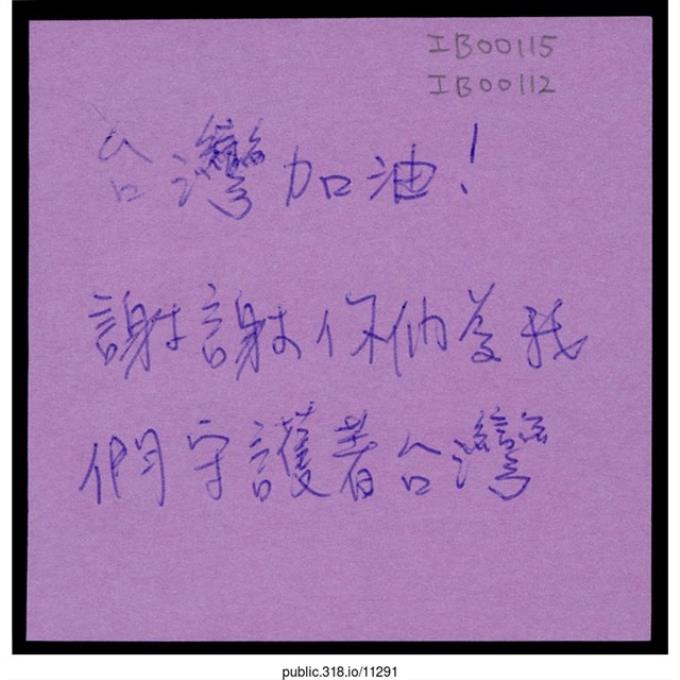 IB00115
IB00112
台灣加油！
謝謝你們為我
們守護著台灣
public.318.io/11291